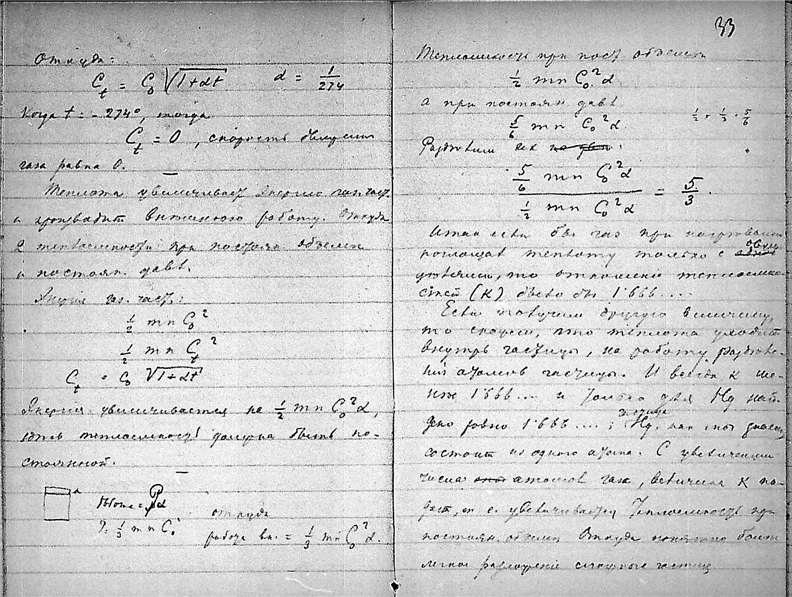 Откуда:
C_t = C_0 √(1+αt)   α = 1/274
Когда t = -274°, тогда
C_t = 0, скорость
газа равна 0.
Теплота увеличивает энергию газ. част.
и производит внешнюю работу. Откуда
2 теплоемкости при постоян. объеме
и постоян. давл.
Энерия газ. част.:
½ mn C_0²
½ mn C_t²
C_t = C_0 √(1+αt)
Энергия увеличивается на ½ mn C_0² α,
теплоемкость должна быть по-
стоянной.
Pα
⅓ mn C_0²
откуда
работа вн. = ⅓ mn C_0² α.
33
Теплоемкость при пост. объеме
½ mn C_0² α
а при постоян. давл.
5/6 mn C_0² α
½ + ⅓ = 5/6
их
(5/6 mn C_0² α) / (½ mn C_0² α) = 5/3.
Итак если бы газ при нагревании
поглощал теплоту только с
то отношение теплоемко-
стей (К) было бы 1'666....
Если получим другую величину,
то скажем, что теплота уходит
внутрь частицы, на работу
атомов частицы. И всегда К ме-
нее 1'666... и только для Hg най-
дено ровно 1'666....; частица Hg, как мы знаем,
состоит из одного атома. С увеличением
числа атомов газа, величина К па-
дает, т. е. увеличивается теплоемкость при
постоян. объеме. Откуда понятно более
легкое разложение сложных частиц.